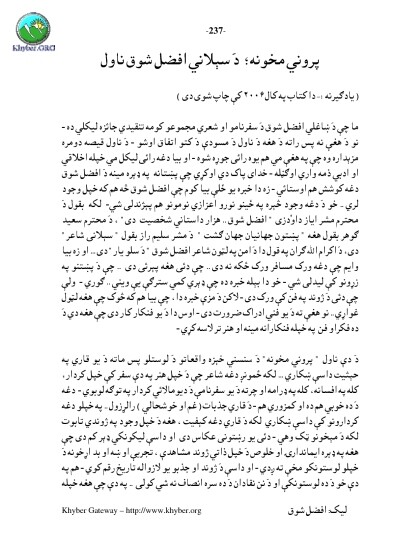 -237-
Khyber.ORG
پروني مخونه؛ دَ سېلاني افضل شوق ناول
( يادګيرنه :- دا کتاب په کال ۲۰۰۴ کې چاپ شوی دی )
ما چې دَ ښاغلي افضل شوق دَ سفرنامو او شعري مجموعو کومه تنقيدي جائزه ليکلي ده -
نو دَ هغې نه پس راته دَ هغه دَ ناول دَ مسودې دَ کتو اتفاق اوشو - دَ ناول قيصه دومره
مزيداره وه چې په هغې مې هم يوه رائی جوړه شوه - او بيا دغه رائی ليکل مې خپله اخلاقي
او ادبي ذمه واري اوګڼله - خدای پاک دی اوکړي چې پښتانه په ډېره مينه دَ افضل شوق
دغه کوشش هم اوستائي - زه دا خبره يو ځلې بيا کوم چې افضل شوق څه هم که خپل وجود
لري - خو دَ دغه وجود څېره په ځينو نورو اعزازي نومونو هم پېژندلی شي - لکه بقول دَ
محترم مشر اياز داوْدزی " افضل شوق .. هزار داستاني شخصيت دی " ، دَ محترم سعيد
ګوهر بقول هغه " پښتون جهانيان جهان ګشت " دَ مشر سليم راز بقول " سېلانی شاعر "
دی ، دَ اکرام الله ګران په قول دا دَ امن په لټون شاعر افضل شوق " دَ سلو يار " دی .. او زه بيا
وايم چې دغه ورک مسافر ورک ځکه نه دی .. چې دئی هغه پېرنی دی .. چې دَ پښتنو په
زړونو کې ليدلی شي - خو دا بېله خبره ده چې ډېری کمې سترګې يې ويني .. ګورې - ولې
چې دئی دَ ژوند په فن کې ورک دی - لاکن دَ مزې خبره دا ، چې بيا هم که څوک چې هغه لټول
غواړي .. نو هغې ته دَ يو فني ادراک ضرورت دی - اوس دا دَ يو فنکار کار دی چې هغه دَ دې
ده فکر او فن په خپله فنکارانه مينه او هنر تر لاسه کړي -
دَ دې ناول " پروني مخونه " دَ سنسني خېزه واقعاتو دَ لوستلو پس ماته دَ يو قاري په
حيثيت داسې ښکاري .. لکه څومره دغه شاعر چې دَ خپل هنر په دې سفر کې خپل کردار ،
کله په افسانه ، کله په ډرامه او چرته دَ يو سفرنامې دَ ډيومالائي کردار په توګه لوبوي - دغه
دَ ده خوبي هم ده او کمزوري هم - دَ قاري جذبات ( غم او خوشحالي ) رالړزول .. په خپلو دغه
کردارونو کې داسې ښکاري لکه دَ قاري دغه کيفيت ، هغه دَ خپل وجود په ژوندي تابوت
لکه دَ مېخونو ټک وهي - دئی يو رښتونی عکاس دی او داسې ليکونکي ډېر کم دی چې
هغه په ډېره ايماندارۍ او خلوص دَ خپل ذاتي ژوند مشاهدې ، تجربې او ښه او بد اړخونه دَ
خپلو لوستونکو مخې ته ږدي - او داسې دَ ژوند او جذبو يو لازواله تاريخ رقم کوي - هم په
دې خو دَ ده لوستونکي او دَ نن نقادان دَ ده سره انصاف نه شي کولی .. په دې چې هغه خپله
Khyber Gateway – http://www.khyber.org
ليک: افضل شوق